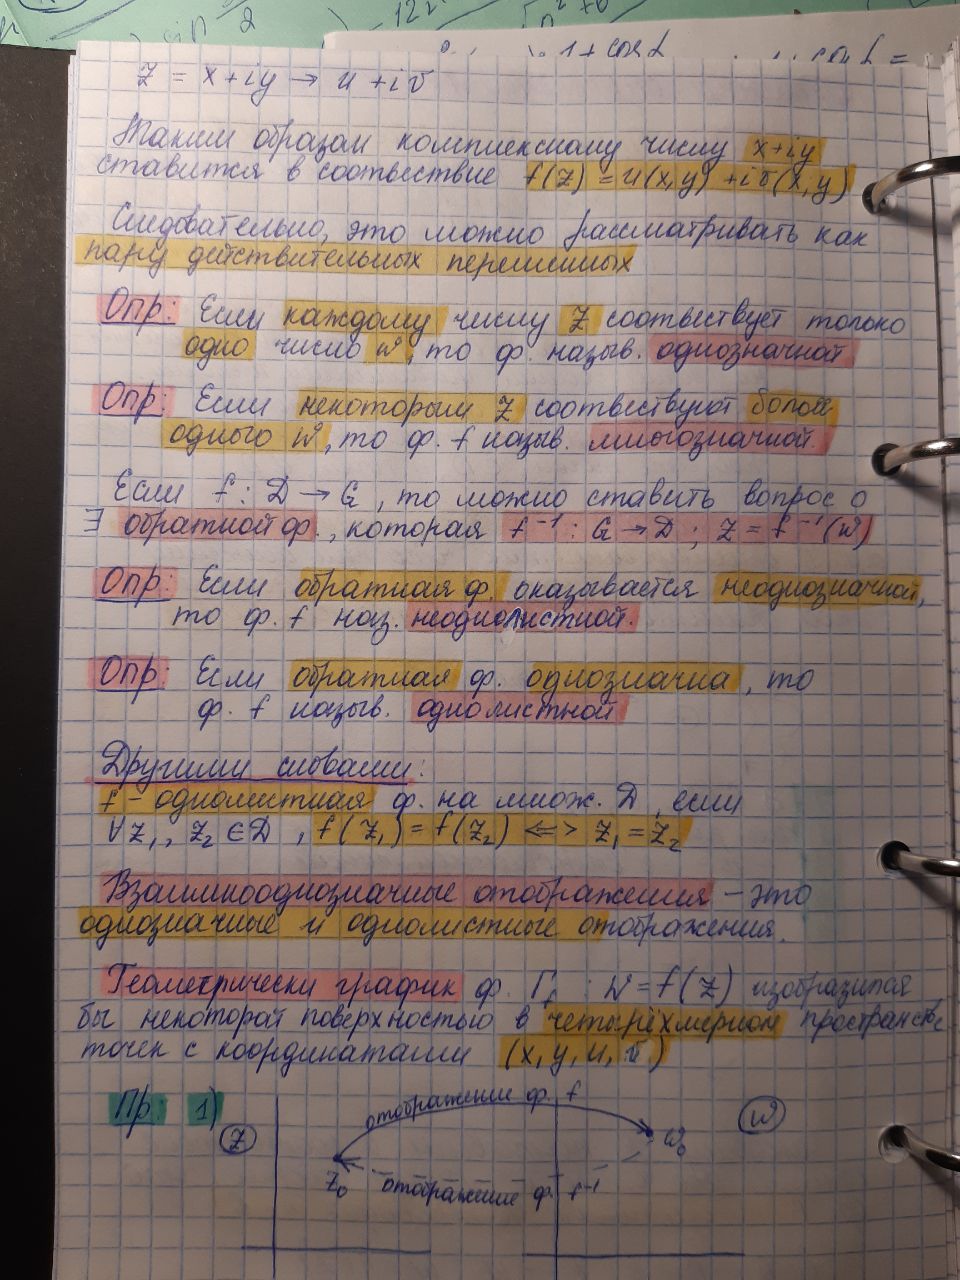 12
n 2
1 + cos L
cos L =
z = x + iy → u + iv
Таким образом комплексному числу x+iy
ставится в соотвествие f(z) = u(x,y) + iv(x,y)
Следовательно, это можно рассматривать как
пару действительных переменных
Опр: Если каждому числу z соотвествует только
одно число w, то ф. назыв. однозначной
Опр: Если некоторым z соотвествуют более
одного w, то ф. f назыв. многозначной.
Если f : D → G, то можно ставить вопрос о
∃ обратной ф., которая f⁻¹ : G → D ; z = f⁻¹(w)
Опр: Если обратная ф. оказывается неоднозначной,
то ф. f наз. неоднолистной.
Опр: Если обратная ф. однозначна, то
ф. f назыв. однолистной
Другими словами:
f - однолистная ф. на множ. D, если
∀ z₁, z₂ ∈ D, f(z₁) = f(z₂) <=> z₁ = z₂
Взаимнооднозначные отображения - это
однозначные и однолистные отображения.
Геометрически график ф. Γf : w = f(z) изобразился
бы некоторой поверхностью в четырёхмерном пространстве
точек с координатами (x, y, u, v)
Пр: 1)
отображение ф. f
z
w
z₀
w₀
отображение ф. f⁻¹